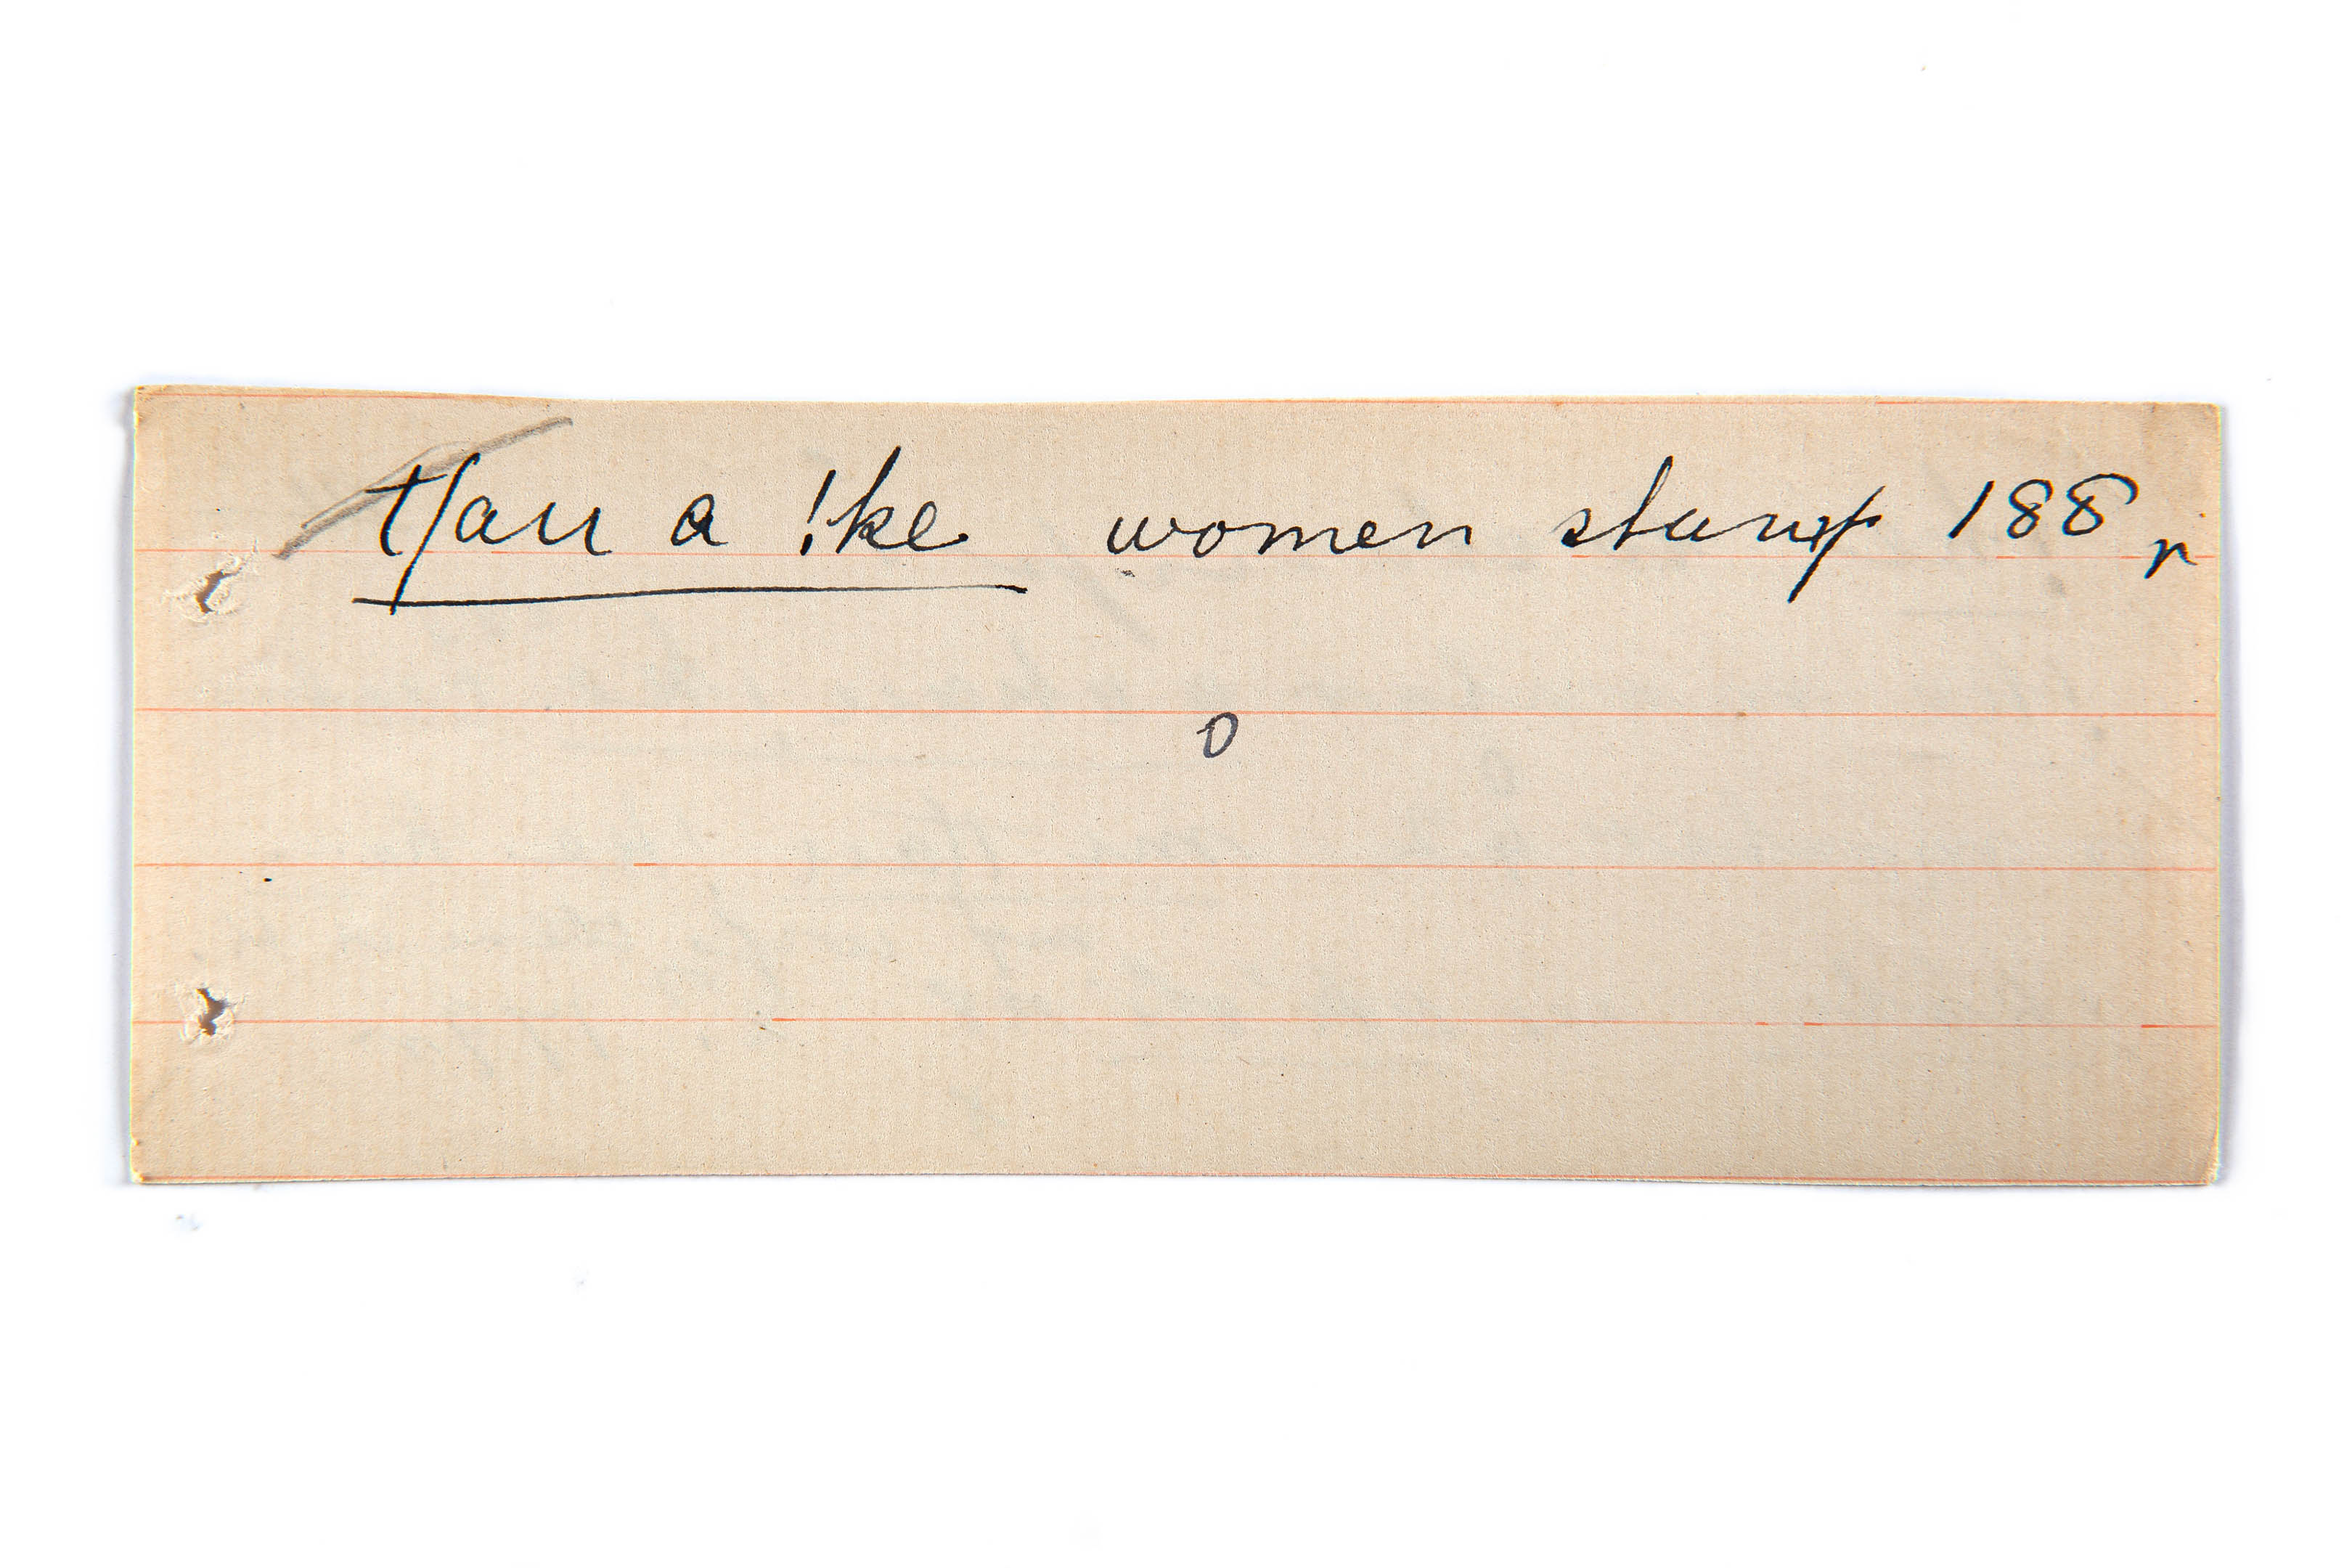 tʃau a !ke women stamp 188 r
o